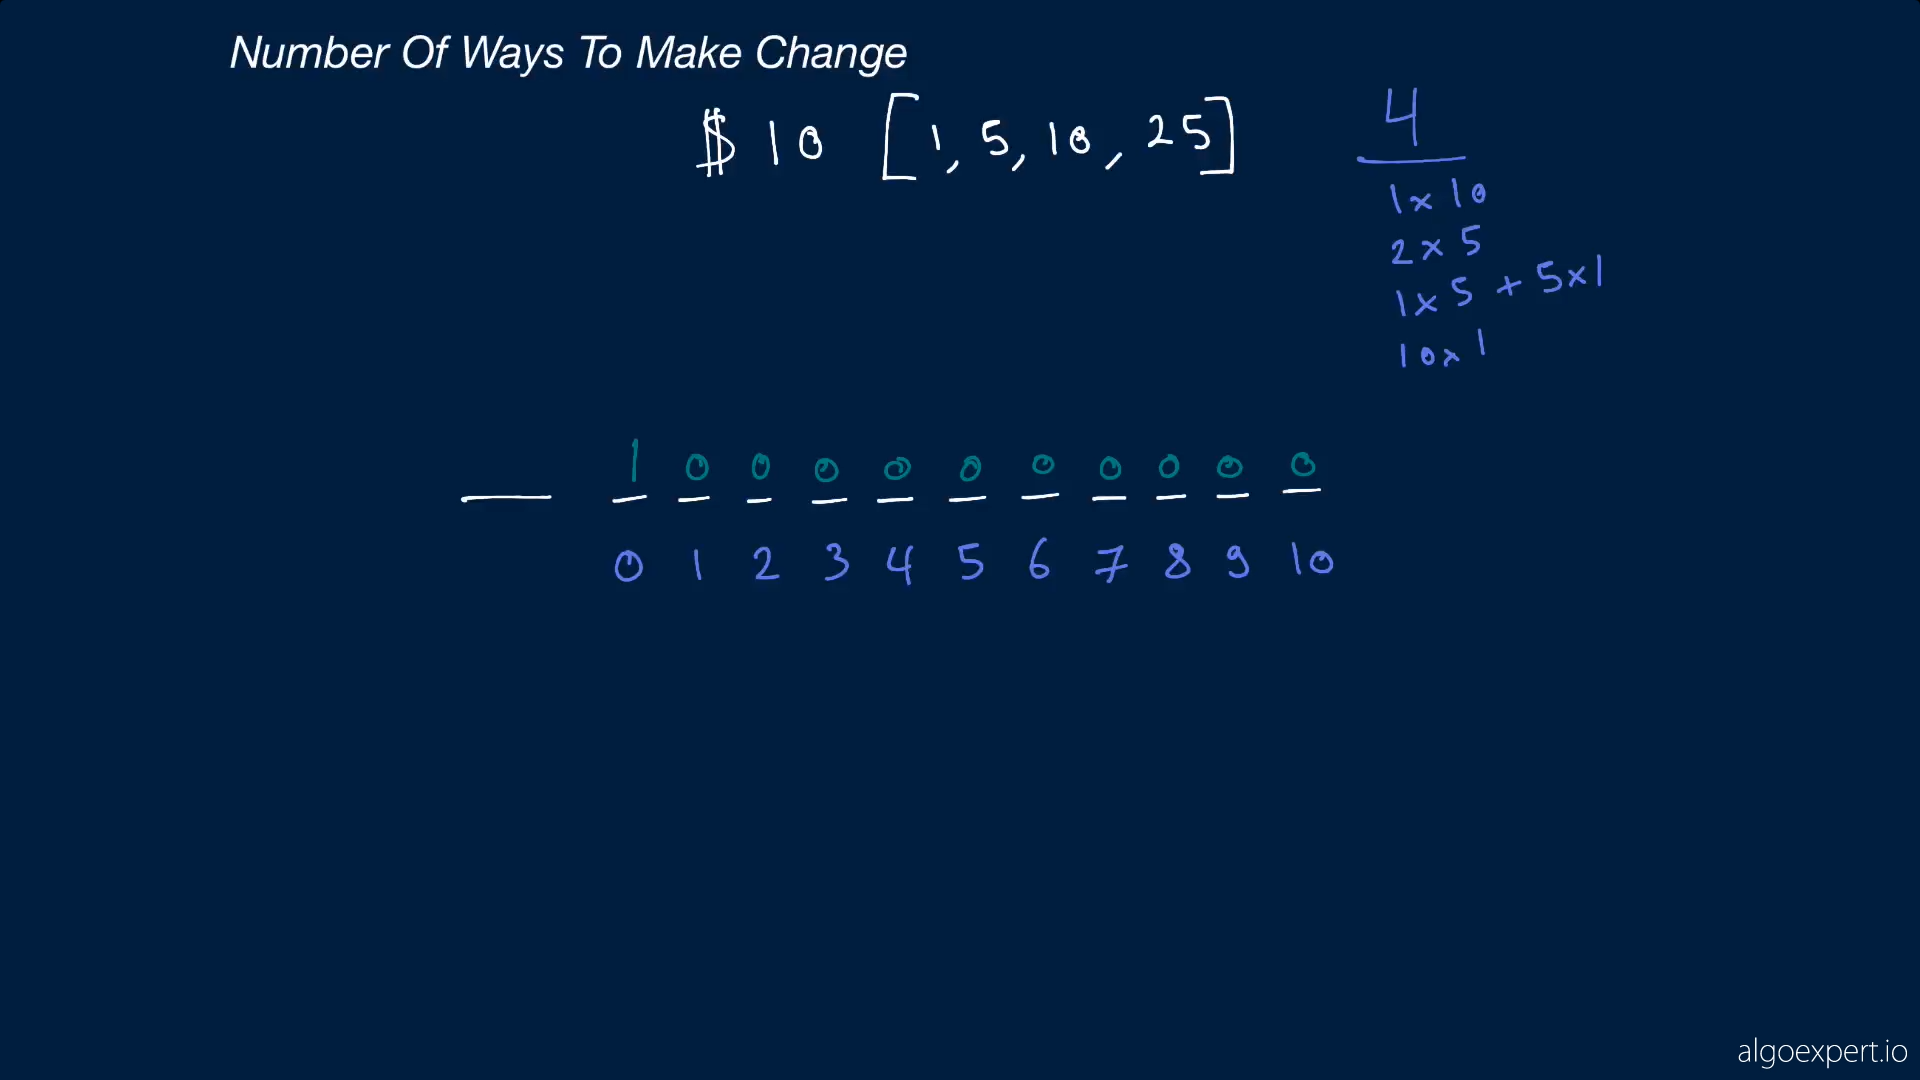 Number Of Ways To Make Change
$ 10 [1, 5, 10, 25]
4
1x10
2x5
1x5 + 5x1
10x1
1 0 0 0 0 0 0 0 0 0 0
0 1 2 3 4 5 6 7 8 9 10
algoexpert.io